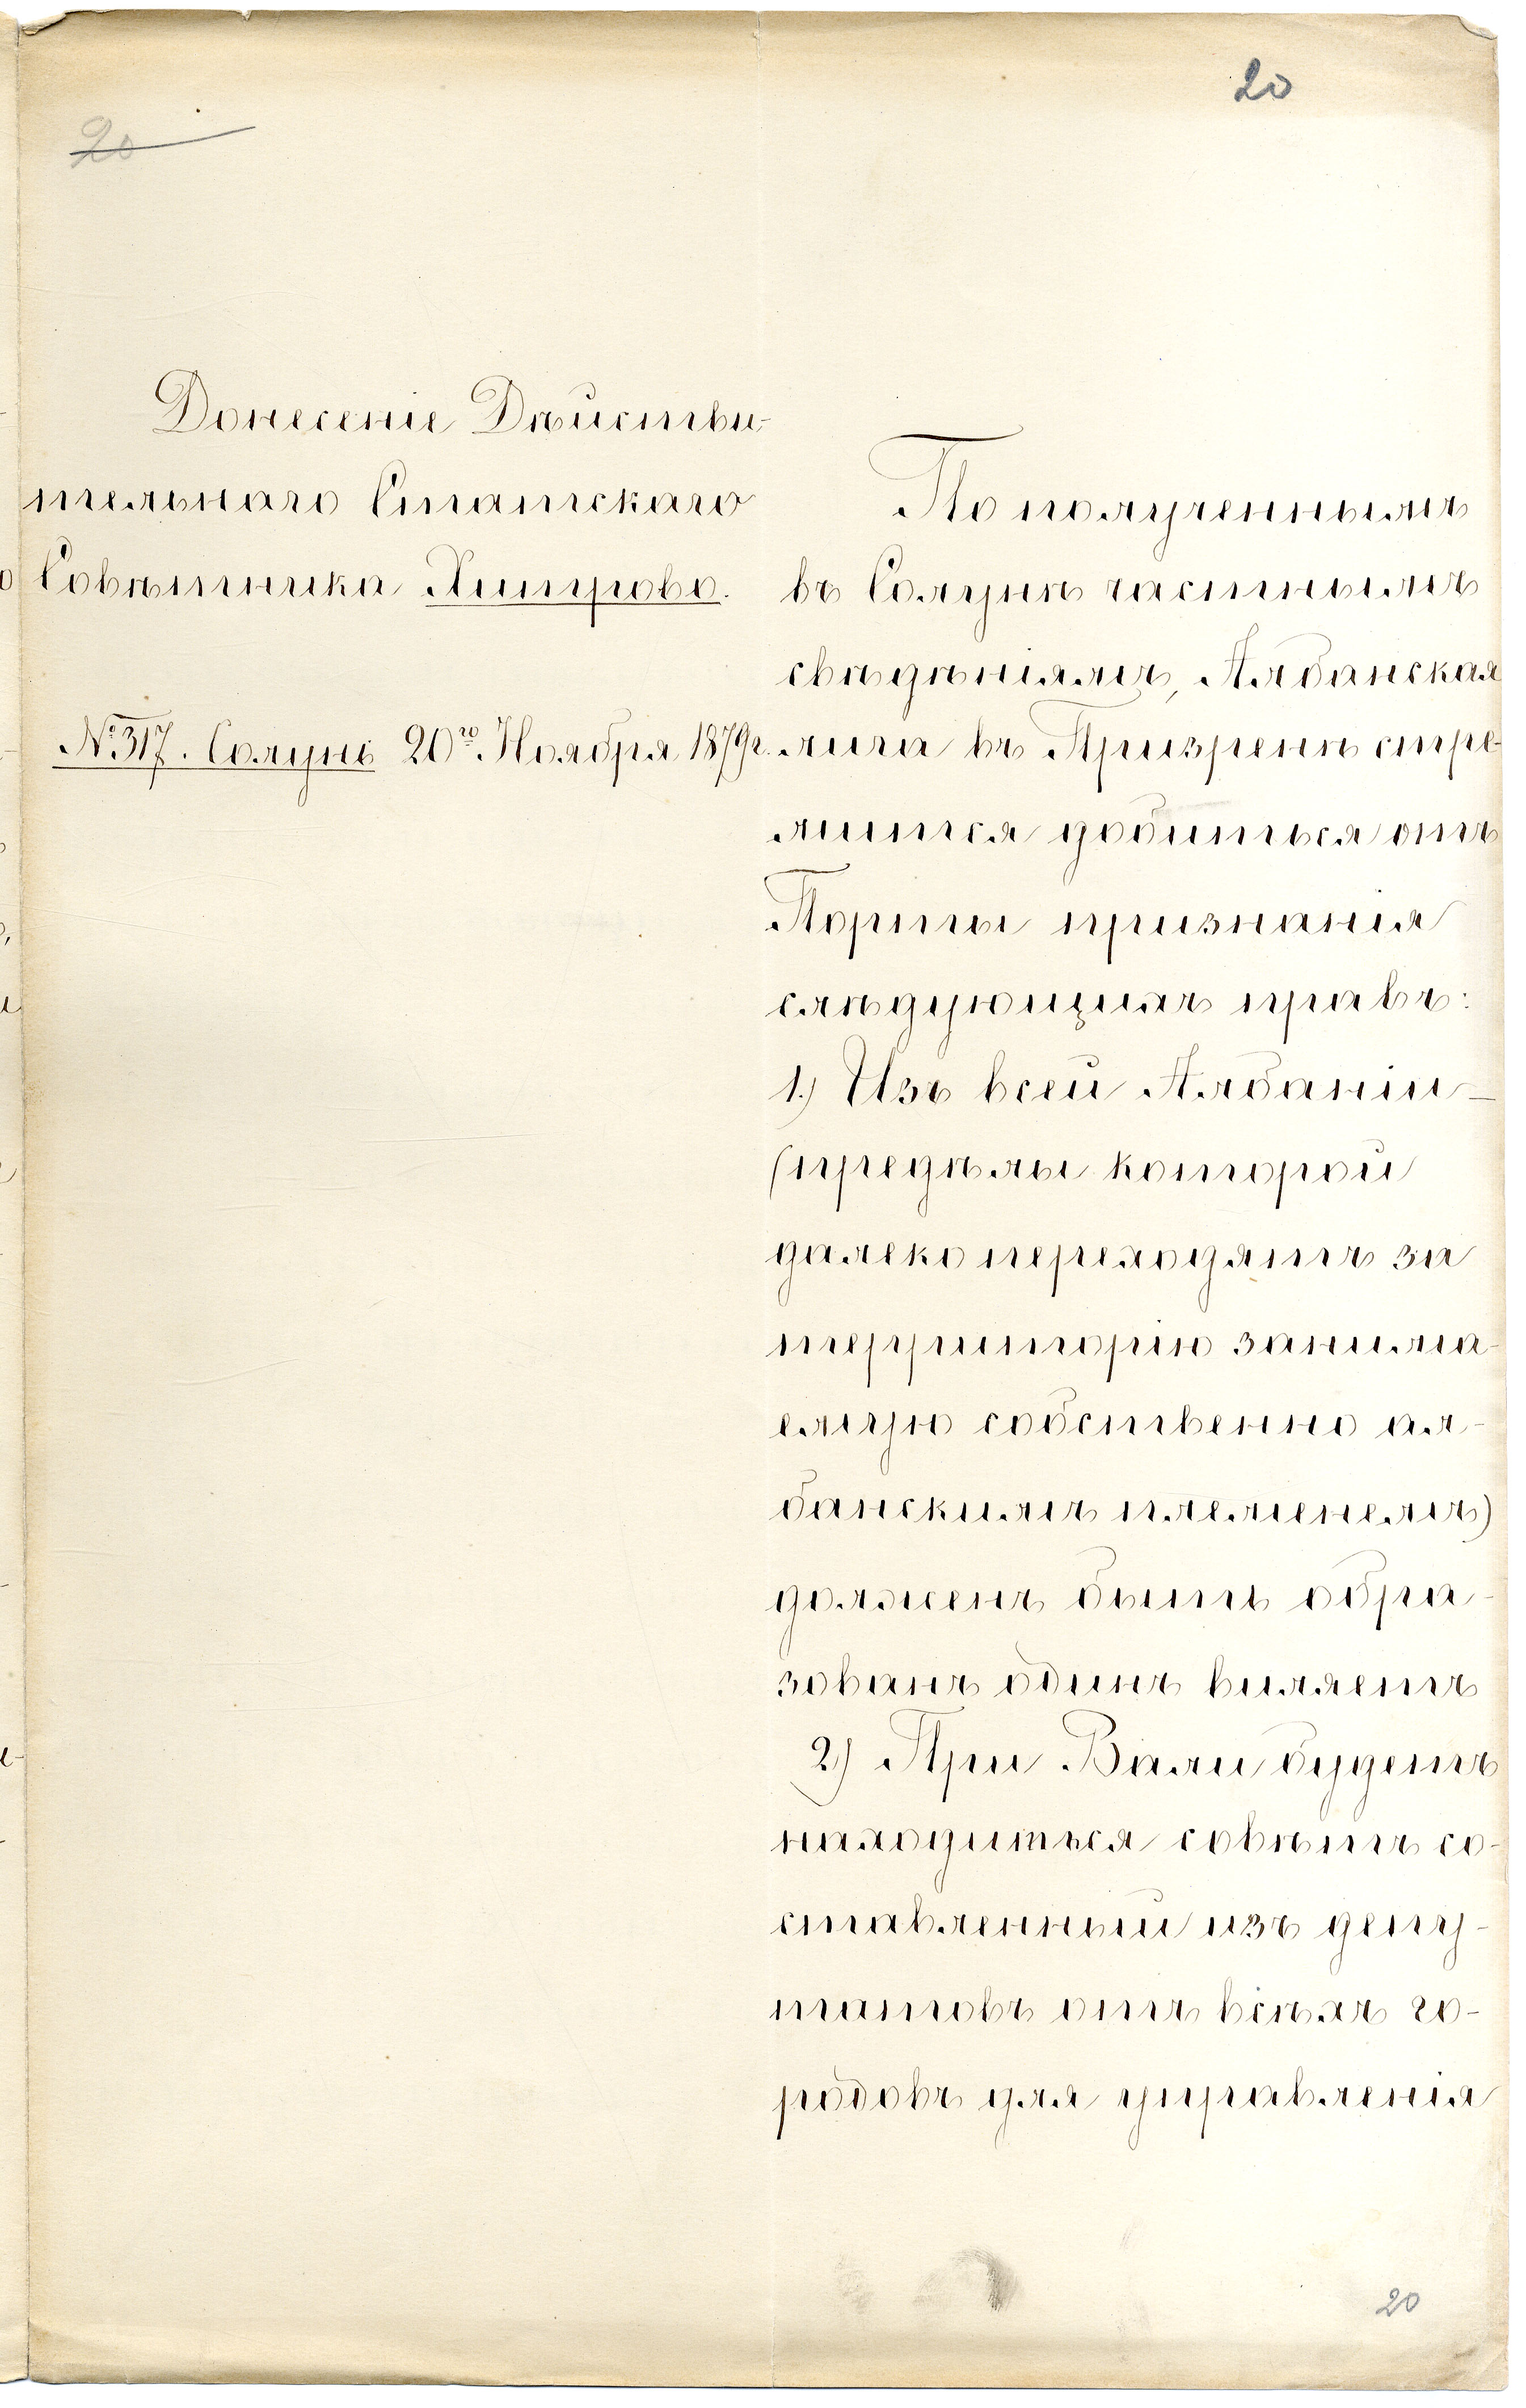 20
20
Донесеніе Дѣйстви-
тельнаго Статскаго
Совѣтника Хитрово.
№ 317. Солунь 20го Ноября 1879г.
По полученнымъ
въ Солунѣ частнымъ
свѣдѣніямъ, Албанская
лига въ Призренѣ стре-
мится добиться отъ
Порты признанія
слѣдующихъ правъ:
1.) Изъ всей Албаніи -
(предѣлы которой
далеко переходятъ за
территорію занима-
емую собственно ал-
банскимъ племенемъ)
долженъ быть обра-
зованъ одинъ вилаетъ
2) При Вали будетъ
находиться совѣтъ со-
ставленный изъ депу-
татовъ отъ всѣхъ го-
родовъ для управленія
20